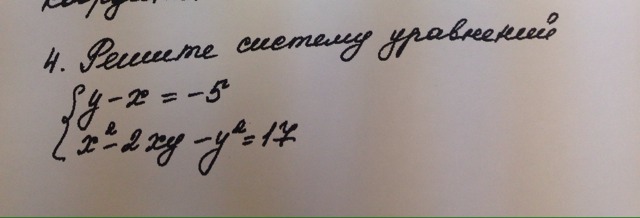 4. Решите систему уравнений
y - x = -5
x² - 2xy - y² = 17